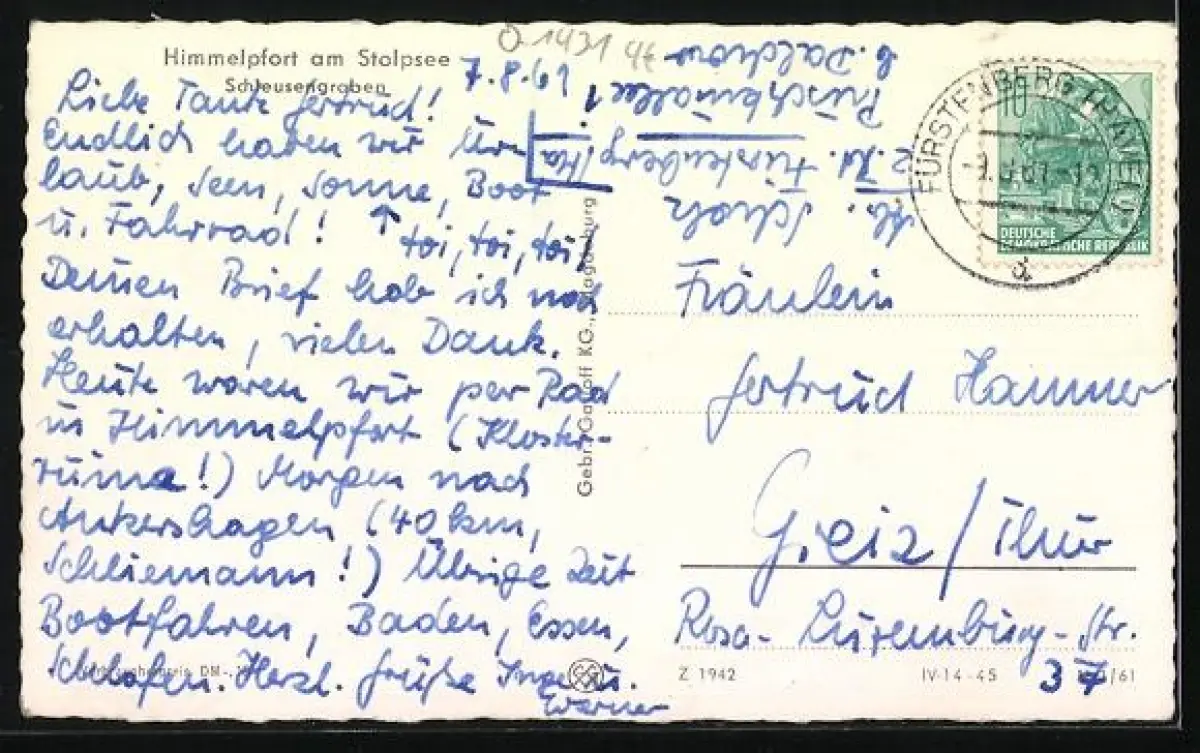 Himmelpfort am Stolpsee
Schleusengraben
Q 1431
7.8.61
Liebe Tante Gertrud!
Endlich haben wir Ur-
laub, Seen, Sonne, Boot
u. Fahrrad! ↑ toi, toi, toi!
Deinen Brief hab ich noch
erhalten, vielen Dank.
Heute waren wir per Rad
in Himmelpfort (Kloster-
ruine!) Morgen nach
Ankershagen (40 km,
Schliemann!) Übrige Zeit
Bootfahren, Baden, Essen,
Schlafen. Herzl. Grüße Inge u.
Werner
Scholz
Fürstenberg/Ha
FÜRSTENBERG (HAVEL)
a
10
DEUTSCHE
DEMOKRATISCHE REPUBLIK
Fräulein
Gertrud Hammer
Greiz/Thür
Rosa-Luxemburg-Str.
37
Gebr. Garloff KG., Magdeburg
Z 1942
IV-14-45
/61